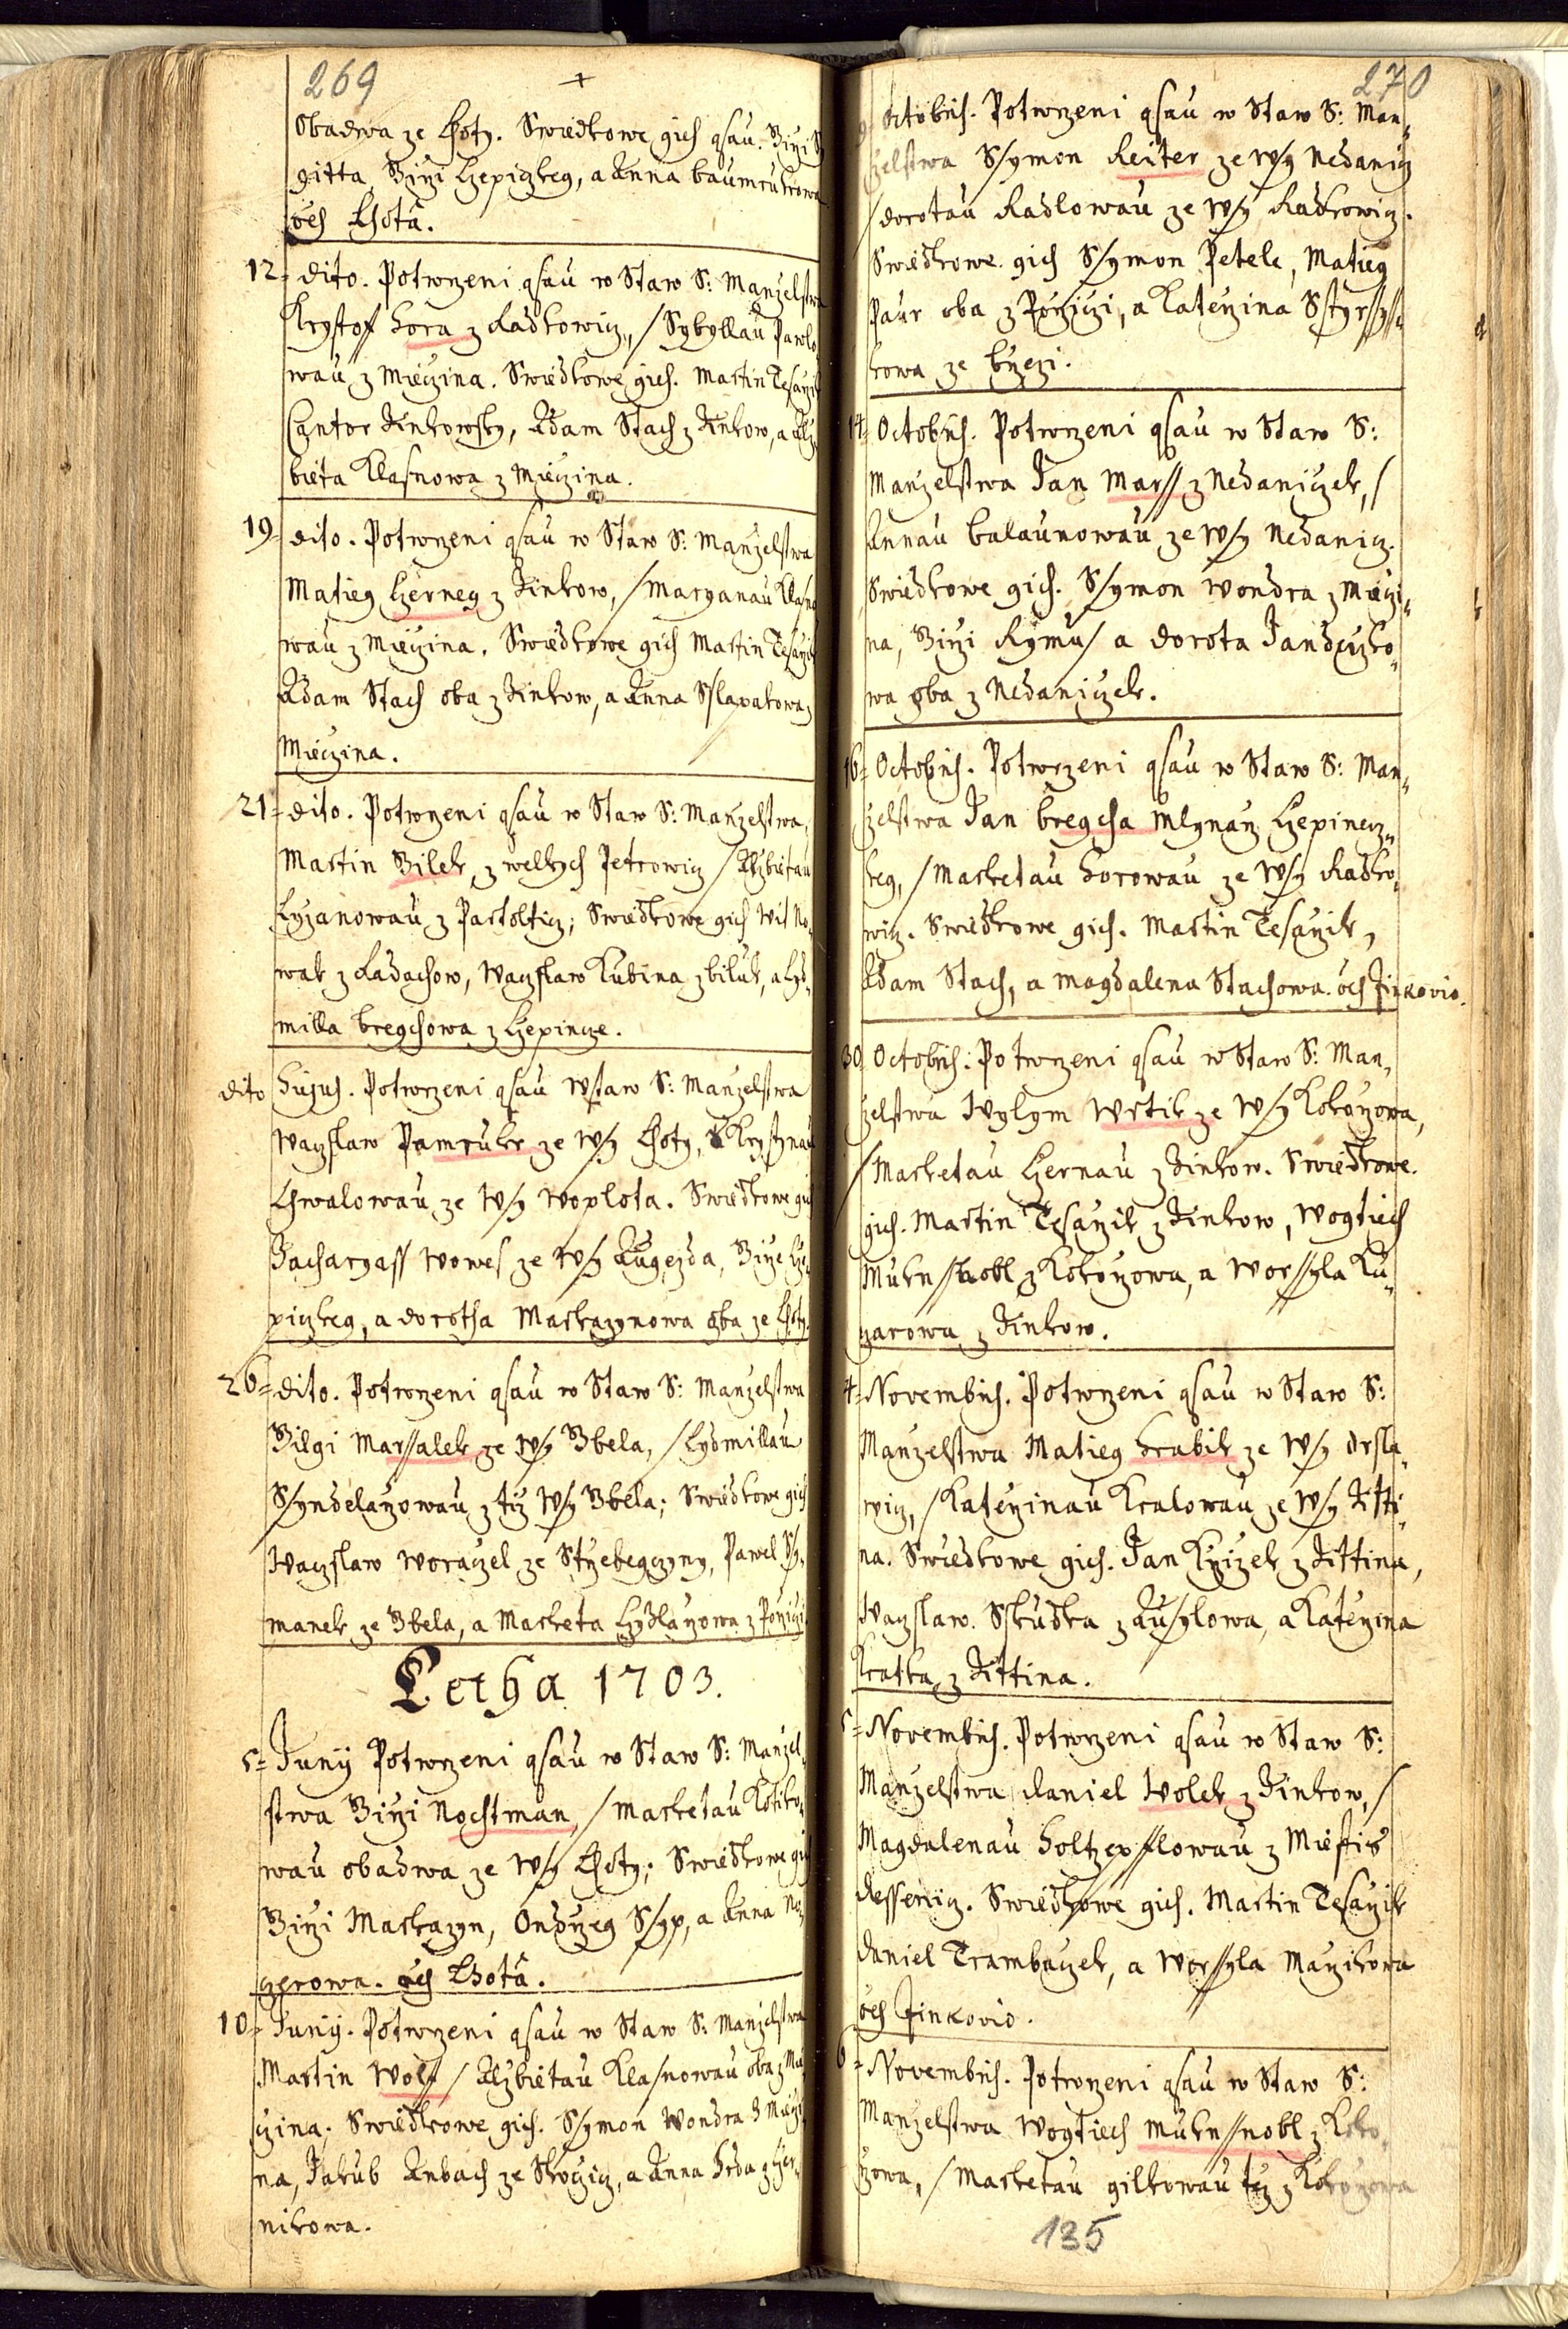 269
Obadwa ze Lhoty. Swiedkowe gich gsau. Birzi
gitta, Birzi Czepiczkeg, a Anna baumrukowa
och Lhota.
12= dito. Potwrzeni gsau w Staw S: Manzelstwa
Krystoff hora z Radkowicz, / Sybyllau Pawlo
wau z Mieczina. Swiedkowe gich. Martin Tesarzik
Cantor Zinkowsky, Adam Stach z Zinkow, a Alz
bieta Klasnowa z Mieczina.
19= dito. Potwrzeni gsau w Staw S: Manzelstwa
Matieg Czerney z Zinkow, / Maryanau Klasno
wau z Mieczina. Swiedkowe gich Martin Tesarzik
Adam Stach oba z Zinkow, a Anna Sslapakowa z
Mieczina.
21= dito. Potwrzeni gsau w Staw S: Manzelstwa,
Martin Bilek z welkych Petrowicz / Alzbietau
Cyzanowau z Partolticz; Swiedkowe gich Wit No,
wak z Radachow, Waczslaw Kubina z biluk, a Lyd,
milla bregchowa z Czepincze.
dito hujus. Potwrzeni gsau w Staw S: Manzelstwa
Waczslaw Pamruk ze wsy Lhoty, / Krystynau
Chwalowau ze Wsy Woplota. Swiedkowe gich
Zacharyass Wowes ze wsy Augezda, Birze Cze,
piczkeg, a dorotha Markazynowa oba ze Lhoty.
26= dito. Potwrzeni gsau w Staw S: Manzelstwa
Bilgi Marssalek ze wsy Zbela, / Lydmillau
Ssyndelarzowau z tyz wsy Zbela; Swiedkowe gich
Waczslaw Woraczel ze Strzebegczyny, Pawel Ssy,
manek ze Zbela, a Marketa Czydlarzowa z Porziczi
Letha 1703.
5= Juny Potwrzeni gsau w Staw S: Manzel,
stwa Birzi Nochtman, / Marketau Kotiko,
wau obadwa ze Wsy Lhoty; Swiedkowe gich
Birzi Markazyn, Ondrzeg Ssyp, a Anna
gerowa. och Lhota.
10= Juny. Potwrzeni gsau w Staw S: Manzelstwa
Martin Wolf / Alzbietau Klasnowau oba z Mie
czina. Swiedkowe gich. Ssymon Wondra z Mieczi
na, Jakub Anbach ze Skoczicz, a Anna hrda z Czer,
nikowa.
270
Octobris. Potwrzeni gsau w Staw S: Man,
zelstwa Ssymon Reiter ze wsy Nedanicz
/ dorotau Radlowau ze wsy Radkowicz.
Swiedkowe gich Ssymon Petele, Matieg
Paur oba z Porziczi, a Katerzina
kowa ze brzezi.
14= Octobris. Potwrzeni gsau w Staw S:
Manzelstwa Jan Marss z Nedaniczek, /
Annau balaunowau ze wsy Nedanicz.
Swiedkowe gich. Ssymon Wondra z Mieczi,
na, Birzi Rymus a dorota
wa oba z Nedaniczek.
16= Octobris. Potwrzeni gsau w Staw S: Man,
zelstwa Jan bregcha Mlynarz Czepinecz,
keg, / Marketau horowau ze wsy Radko,
wicz. Swiedkowe gich. Martin Tesarzik,
Adam Stach, a Magdalena Stachowa. och Zinkovio.
30 Octobris. Potwrzeni gsau w Staw S: Man,
zelstwa Wylym Wrtik ze wsy Kokorzowa,
/ Marketau Czernau z Zinkow. Swiedkowe
gich. Martin Tesarzik z Zinkow, Wogtiech
Muknssnobl z Kokorzowa, a Worssyla Ku,
zarowa z Zinkow.
4= Novembris. Potwrzeni gsau w Staw S:
Manzelstwa Matieg hrabik ze wsy drsla,
wicz, / Katerzinau Kralowau ze wsy Zitti,
na. Swiedkowe gich. Jan Krziczek z Zittina,
Waczslaw Skudka z Aussylowa, a Katerzina
Kratka z Zittina.
5= Novembris. Potwrzeni gsau w Staw S:
Manzelstwa daniel Wolek z Zinkow, /
Magdalenau holtzepsslowau z Miestis
dessenicz. Swiedkowe gich. Martin Tesarzik
daniel Trambaczek, a Worssyla Marzikowa
och Zinkovio.
6= Novembris. Potwrzeni gsau w Staw S:
Manzelstwa Wogtiech Muknssnobl z Koko,
rzowa, / Marketau gilkowau tez z Kokorzowa
135